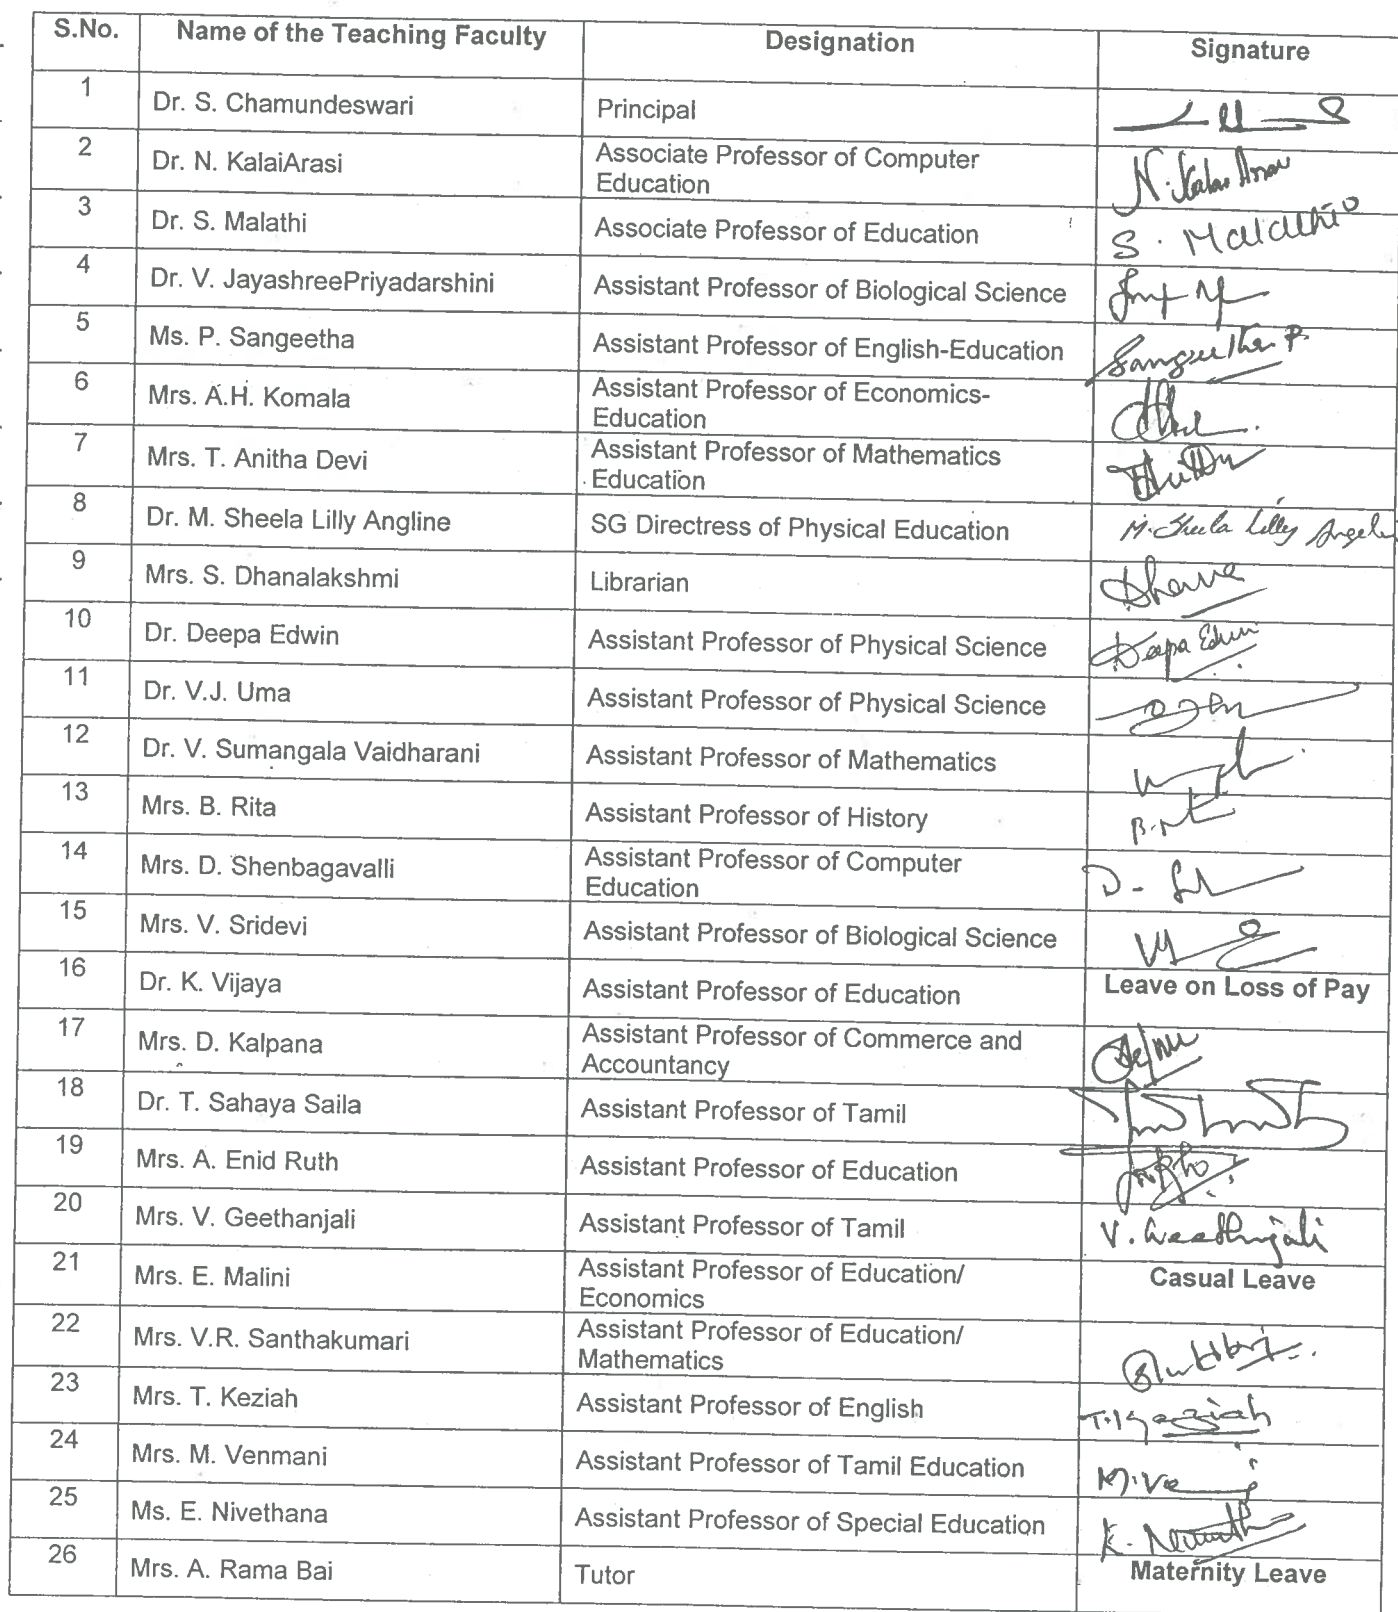 S.No. Name of the Teaching Faculty Designation Signature
1 Dr. S. Chamundeswari Principal
2 Dr. N. KalaiArasi Associate Professor of Computer
Education N. Kalai Arasi
3 Dr. S. Malathi Associate Professor of Education S. Malathi
4 Dr. V. JayashreePriyadarshini Assistant Professor of Biological Science
5 Ms. P. Sangeetha Assistant Professor of English-Education Sangeetha P.
6 Mrs. A.H. Komala Assistant Professor of Economics-
Education
7 Mrs. T. Anitha Devi Assistant Professor of Mathematics
Education
8 Dr. M. Sheela Lilly Angline SG Directress of Physical Education M. Sheela Lilly
9 Mrs. S. Dhanalakshmi Librarian Dhana
10 Dr. Deepa Edwin Assistant Professor of Physical Science Deepa Edwin
11 Dr. V.J. Uma Assistant Professor of Physical Science
12 Dr. V. Sumangala Vaidharani Assistant Professor of Mathematics
13 Mrs. B. Rita Assistant Professor of History
14 Mrs. D. Shenbagavalli Assistant Professor of Computer
Education
15 Mrs. V. Sridevi Assistant Professor of Biological Science
16 Dr. K. Vijaya Assistant Professor of Education Leave on Loss of Pay
17 Mrs. D. Kalpana Assistant Professor of Commerce and
Accountancy
18 Dr. T. Sahaya Saila Assistant Professor of Tamil
19 Mrs. A. Enid Ruth Assistant Professor of Education
20 Mrs. V. Geethanjali Assistant Professor of Tamil V. Geethanjali
21 Mrs. E. Malini Assistant Professor of Education/
Economics Casual Leave
22 Mrs. V.R. Santhakumari Assistant Professor of Education/
Mathematics
23 Mrs. T. Keziah Assistant Professor of English
24 Mrs. M. Venmani Assistant Professor of Tamil Education
25 Ms. E. Nivethana Assistant Professor of Special Education
26 Mrs. A. Rama Bai Tutor Maternity Leave